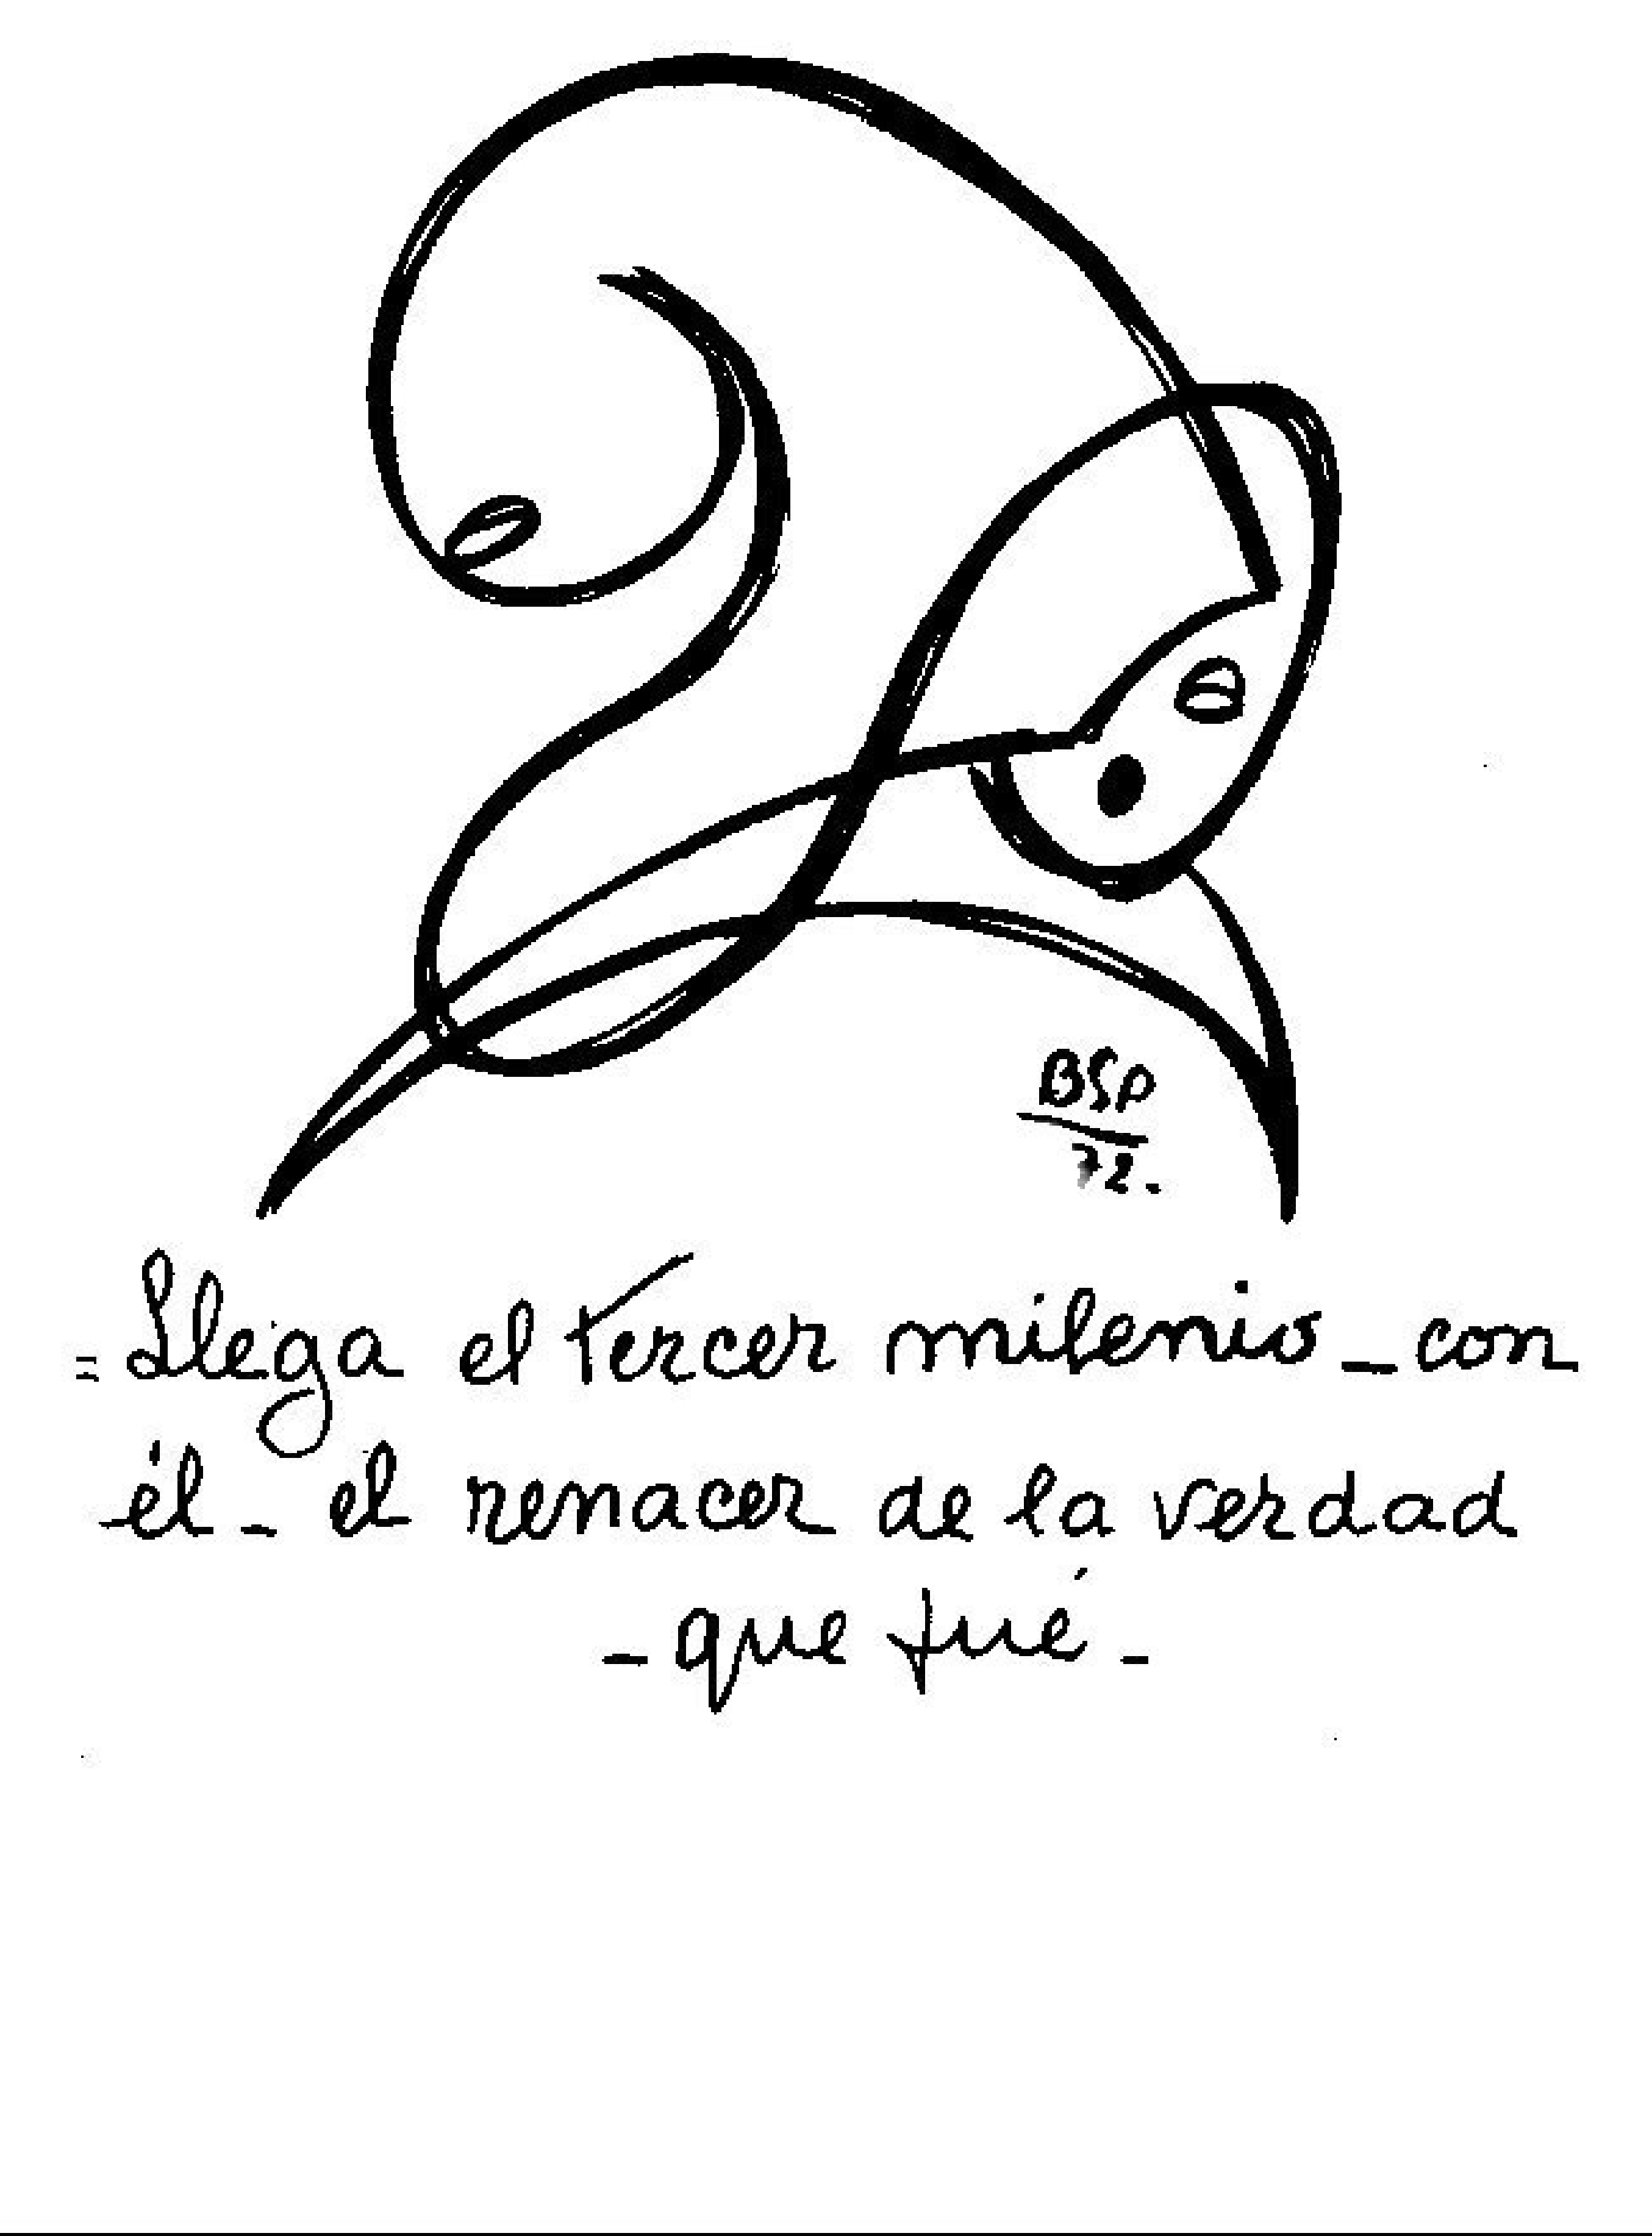 BSP
72.
= Llega el tercer milenio _ con
él _ el renacer de la verdad
_ que fué _